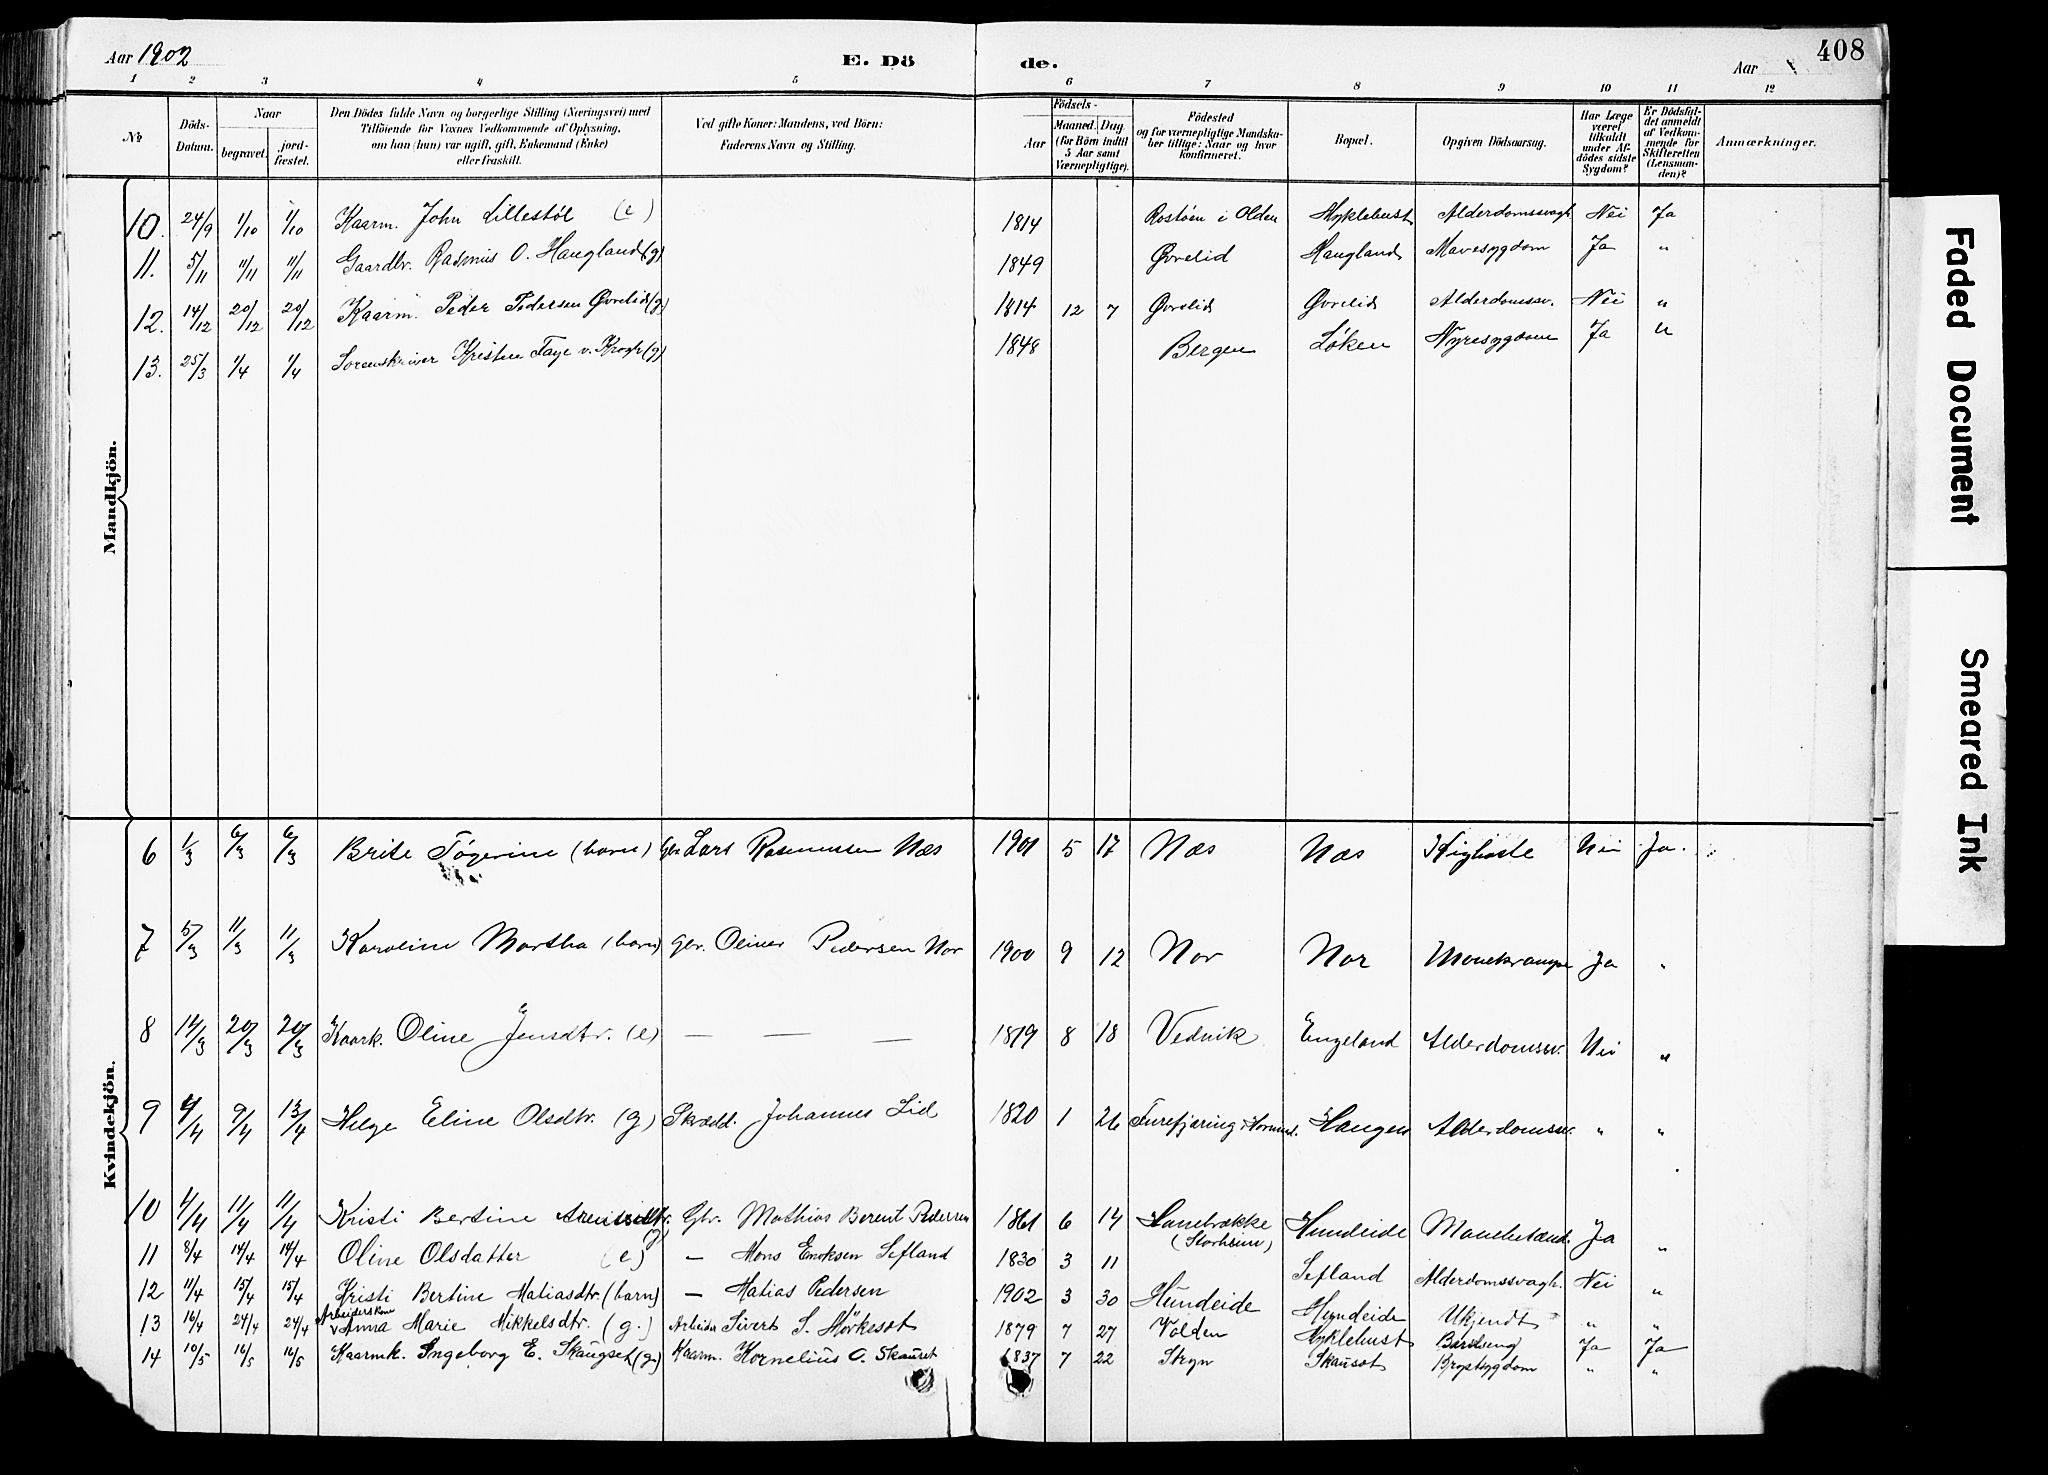 Aar 1902
E. Dö
de.
Aar
408
1 2 3 4 5 6 7 8 9 10 11 12
No
Döds-Datum.
Naar
begravet.
jord-fæstet.
Den Dödes fulde Navn og borgerlige Stilling (Næringsvei) med
Tilföiende for Voxnes Vedkommende af Oplysning,
om han (hun) var ugift, gift, Enkemand (Enke)
eller fraskilt.
Ved gifte Koner: Mandens, ved Börn:
Faderens Navn og Stilling.
Födsels-
Aar
Maaned.
Dag
(for Börn indtil
5 Aar samt
Værnepligtige).
Födested
og for værnepligtige Mandska-
ber tillige: Naar og hvor
konfirmeret.
Bopæl.
Opgiven Dödsaarsag.
Har Læge
været
tilkaldt
under Af-
dödes sidste
Sygdom?
Er Dödsfal-
det anmeldt
af Vedkom-
mende for
Skifteretten
(Lensman-
den)?
Anmærkninger.
Mandkjön.
10. 24/9 1/10 1/10 Kaarm. John Lillestöl (e) 1814 Rostöen i Olden Myklebust Alderdomssvagh. Nei Ja
11. 5/11 11/11 11/11 Gaardbr. Rasmus O. Haugland (g) 1849 Øvrelid Haugland Mavesygdom Ja "
12. 14/12 20/12 20/12 Kaarm. Peder Pedersen Øvrelid (g) 1814 12 7 Øvrelid Øvrelid Alderdomssv. Nei "
13. 25/3 1/4 1/4 Sorenskriver Kristen Faye v. Krogh (g) 1848 Bergen Løken Nyresygdom Ja "
Kvindekjön.
6 1/3 6/3 6/3 Brite Tøgerine (barn) Gbr. Lars Rasmussen Næs 1901 5 17 Næs Næs Kighoste Nei Ja.
7 5/3 11/3 11/3 Karoline Martha (barn) Gbr. Oliver Pedersen Nor 1900 9 12 Nor Nor Mavekrampe Ja "
8 14/3 20/3 20/3 Kaark. Oline Jensdtr. (e) — — — 1819 8 18 Vedvik Engeland Alderdomssv. Nei "
9 4/4 9/4 13/4 Helge Eline Olsdtr. (g) Skrædd. Johannes Lid 1820 1 26 Haugen Alderdomssv. " "
10 4/4 11/4 11/4 Kristi Bertine (g) Gbr. Mathias Berent Pedersen 1861 6 14 Hanebrække (Storheim) Hundeide Ja "
11 8/4 14/4 14/4 Oline Olsdatter (e) — Mons Eriksen Sefland 1830 3 11 Sefland Alderdomssvagh. Nei "
12 11/4 15/4 15/4 Kristi Bertine Matiasdtr. (barn) — Matias Pedersen 1902 3 30 Hundeide Hundeide Ukjendt " "
13 16/4 24/4 24/4 Arbeiderskone Anna Marie Mikkelsdtr. (g.) Arbeider Sivert S. Mörkesat 1879 7 27 Volden Myklebust Barselseng Ja Ja
14 10/5 16/5 16/5 Kaarmk. Ingeborg E. Skaugset (g) Kaarm. Kornelius O. Skauset 1837 7 22 Stryn Skauset Brystsygdom " "
Faded Document
Smeared Ink